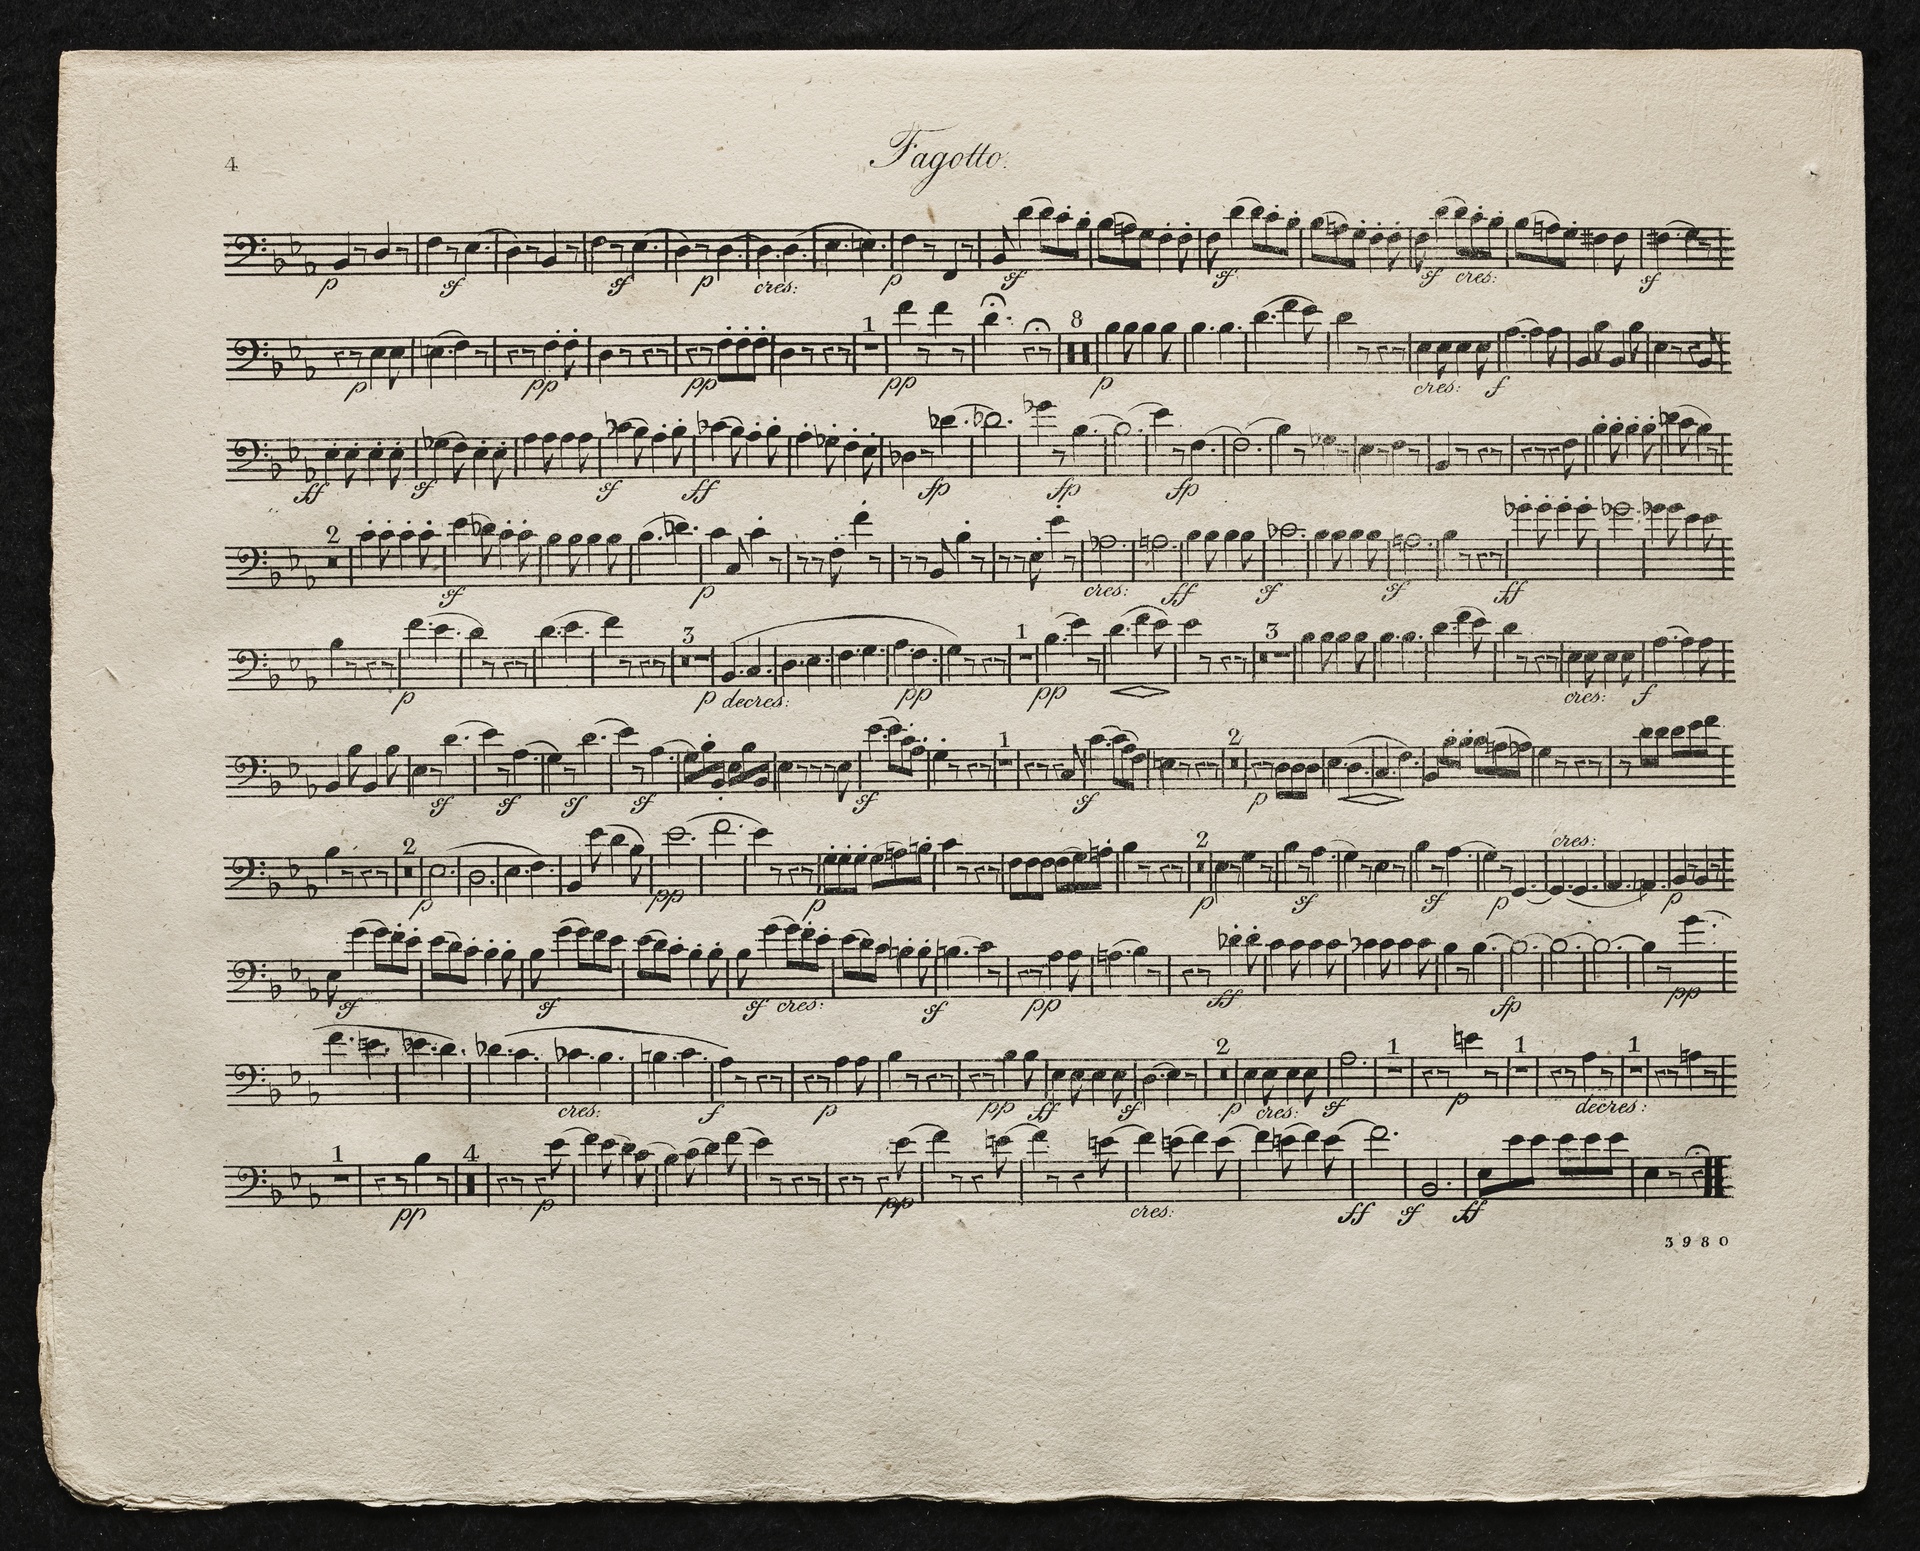 4
Fagotto.
p sf sf p cres: p sf sf sf cres: sf
1 8
p pp pp pp p cres: f
ff sf sf ff fp fp fp
2
sf p cres: ff sf sf ff
3 1 3
p p decres: pp pp cres: f
1 2
sf sf sf sf sf sf p
2 2 cres:
p pp p p sf sf p p
sf sf sf cres: sf pp ff fp pp
2 1 1 1
cres: f p pp ff sf p cres: sf p decres:
1 4
pp p pp cres: ff sf ff
3980